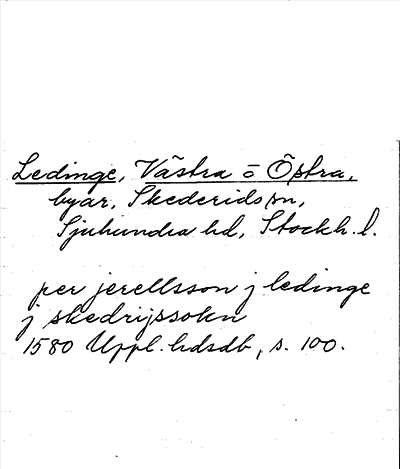 Ledinge, Västra o Östra,
byar, Skederids sn,
Sjuhundra hd, Stockh. l.
per jerellsson j ledinge
j skedrijssokn
1580 Uppl. hdsdb, s. 100.